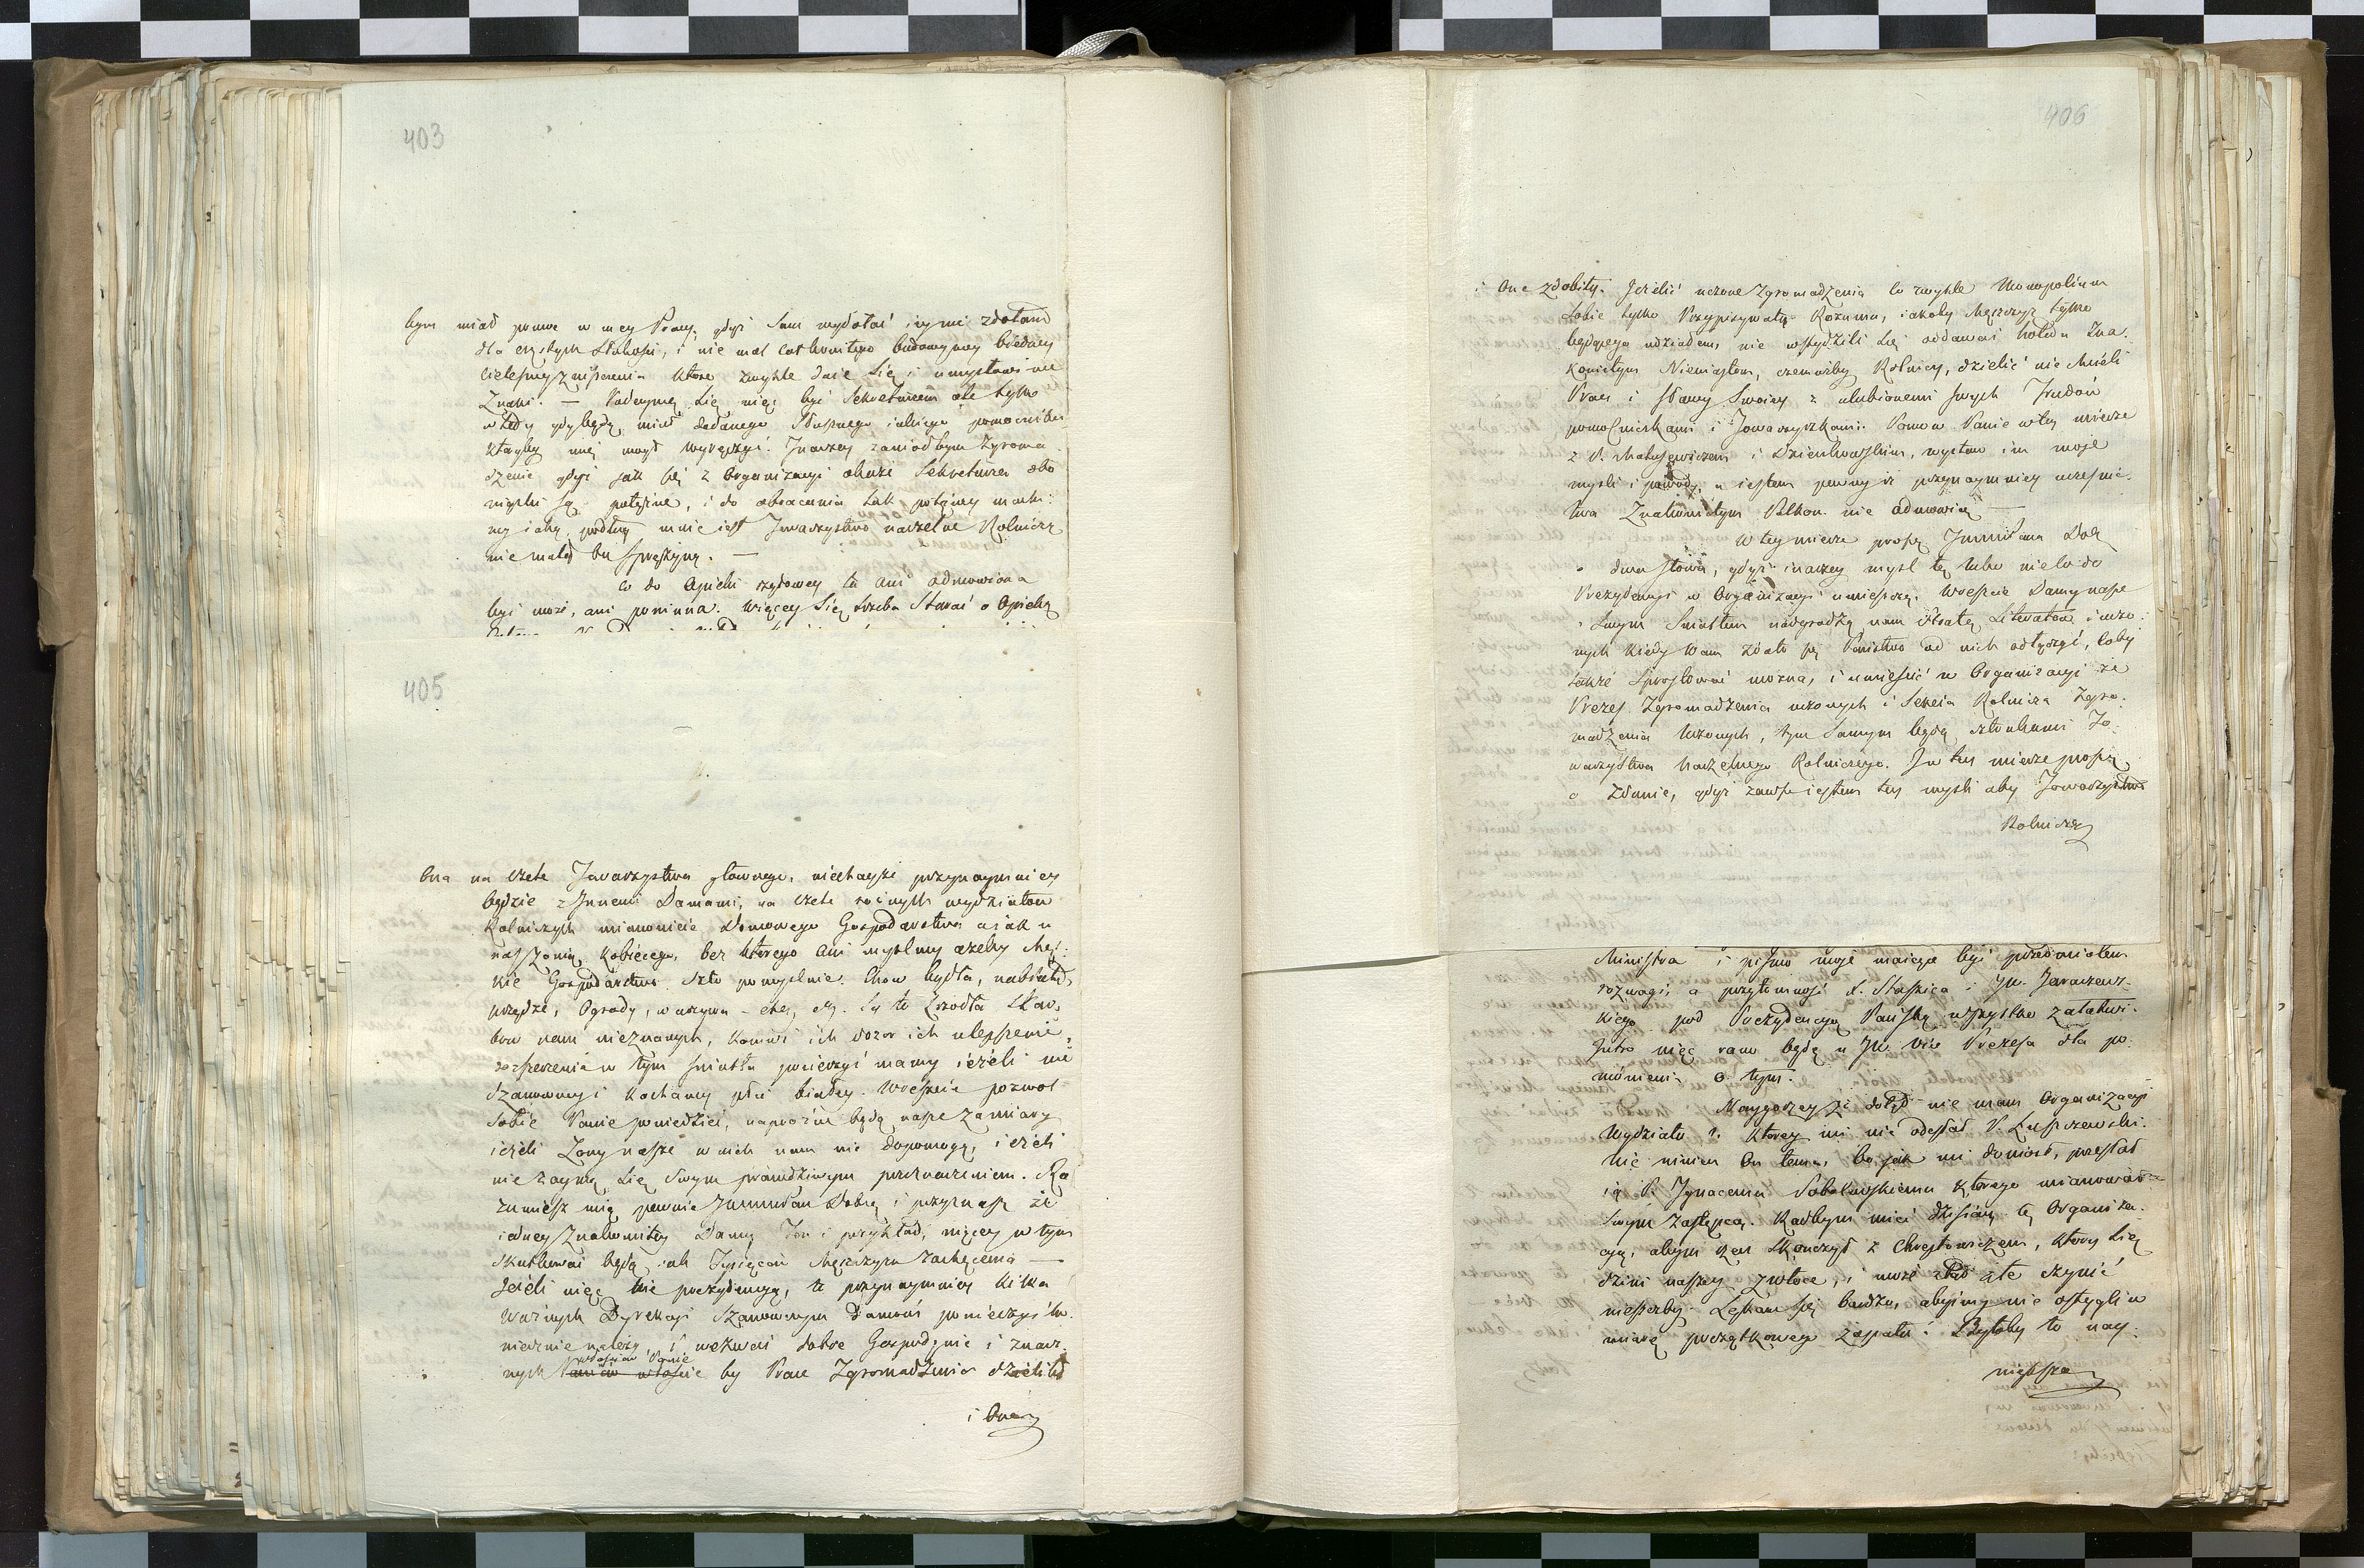 403
bym miał pomoc w mey Pracy, gdyż sam wydołać iey nie zdołam
dla częstych słabości, i nie mal całkowitego budowy mey biedney
cielesney zniszczenia które zwykle daie się i umysłowi we
znaki. — Podeymę się więc być Sekretarzem ale tylko
wtedy gdy będę miał dodanego Słusznego iakiego pomocnika
któryby mię mógł wyręczyć. Inaczey zawiodłbym Zgroma
dzenie gdyż jak się z Organizacyi okaże Sekretarza obo
wiązki są potężne, i do obracania tak potężney machi:
ny iaką podług mnie iest Towarzystwo naczelne Rolnicze
nie małą bu sprężyną. —
Co do Opieki rządowey ta ani odmowiona
być może, ani powinna. Więcey się trzeba Starać o Opiekę
405
Ona na czele Towarzystwa głownego, niechayże przynaymniey
będzie z Innemi Damami, na czele rożnych wydziałow
Rolniczych mianowicie Domowego Gospodarstwa a iak u
nas zowią Kobiecego, bez którego ani myslmy ażeby Męs:
kie Gospodarstwo szło pomyslnie. Chow bydła, nabiału,
przędze, Ogrody, warzywa – etc, etc. Są to Zrodła skar,
bow nam nieznanych, komuż ich dozor ich ulepszenie,
rozszerzenie w tym swiatła powierzyć mamy ieżeli nie
Szanowney i Kochaney płci białey. Wreszcie pozwol
sobie Panie powiedzieć, naprożne będą nasze zamiary
ieżeli Zony nasze w nich nam nie dopomogą, ieżeli
nie zaymą się swym prawdziwym przeznaczeniem. Ro
zumiesz mię pewnie JWWPan Dobr. i przyznasz że
iedney Znakomitey Damy Ton i przykład, więcey w tym
skutkować będą iak Tysiącow Męszczyzn zachęcenia —
Jeżeli więc nie prezydencyą, to przynaymniey kilka
ważnych Dyrekcyi Szanownym Damom powierzyć ko.
niecznie należy, i wezwać dobre Gospodynie i znaw.
własnie Panie
nych by Prace Zgromadzenia dzieliły
i One
406
i One zdobiły. Jeżeli uczone Zgromadzenia co zwykle Monopolium
sobie tylko Przypisywały Rozumu, iakoby Męszczyzn tylko
będącego udziałem, nie wstydzili się oddawać hołdu Zna.
komitym Niewiastom, czemużby Rolnicy, dzielić nie chcieli
Prac i Sławy Swoiey z ulubionemi swych Trudow
pomocnickami i Towarzyszkami. Pomow Panie w tey mierze
z P. Matuszewiczem i Dzieńkowskim, wystaw im moje
mysli i powody, a iestem pewny iż przynaymniey uczesnic.
twa Znakomitym Polkom nie odmowią —
W tey mierze proszę JWWPana Dob
o dwa słowa, gdyż inaczey mysl tę lubo nie co do
Prezydencyi w Organizacyi umieszczę. Wreszcie Damy nasze
swym Swiatłem nadgrodzą nam stratę Literatow i uczo:
nych kiedy wam zdało się Państwo od nich odłączyć, coby
także sprostować można, i umieścić w Organizacyi że
Prezes Zgromadzenia uczonych i Sekcia Rolnicza Zgro.
madzenia Uczonych, tym samym będą członkami To.
warzystwa Naczelnego Rolniczego. I w tey mierze proszę
o zdanie, gdyż zawsze iestem tey mysli aby Towarzystwo
Rolnicze
Ministra i pismo moje maiące być przedmiotem
rozwagi, a przytomność X. Staszica i JW. Jaraczews.
kiego pod Prezydencyą Pańską wszystko załatwi.
Jutro więc rano będę u JW. Vice Prezesa dla po.
mowienia o tym.
Naygorzey że dotąd nie mam Organizacyi
Wydziału r. ktorey mi nie odesłał P. Łuszczewski.
Nie winien On temu, bo jak mi doniosł, przesłał
ią P. Ignacemu Sobolewskiemu ktorego mianował
swym zastępcą. Radbym mieć dzisiay tę Organiza.
cyą, abym rzecz skończył z Chreptowiczem, ktory się
dziwi naszey zwłoce, i może złe czynić
wieszczby. Lękam się bardzo, abyśmy nie ostygli w
miarę początkowego zapału! Byłoby to nay:
większa